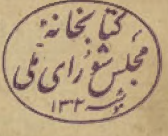 کتابخانهٔ
مجلس شورای ملی
۱۳۰۲